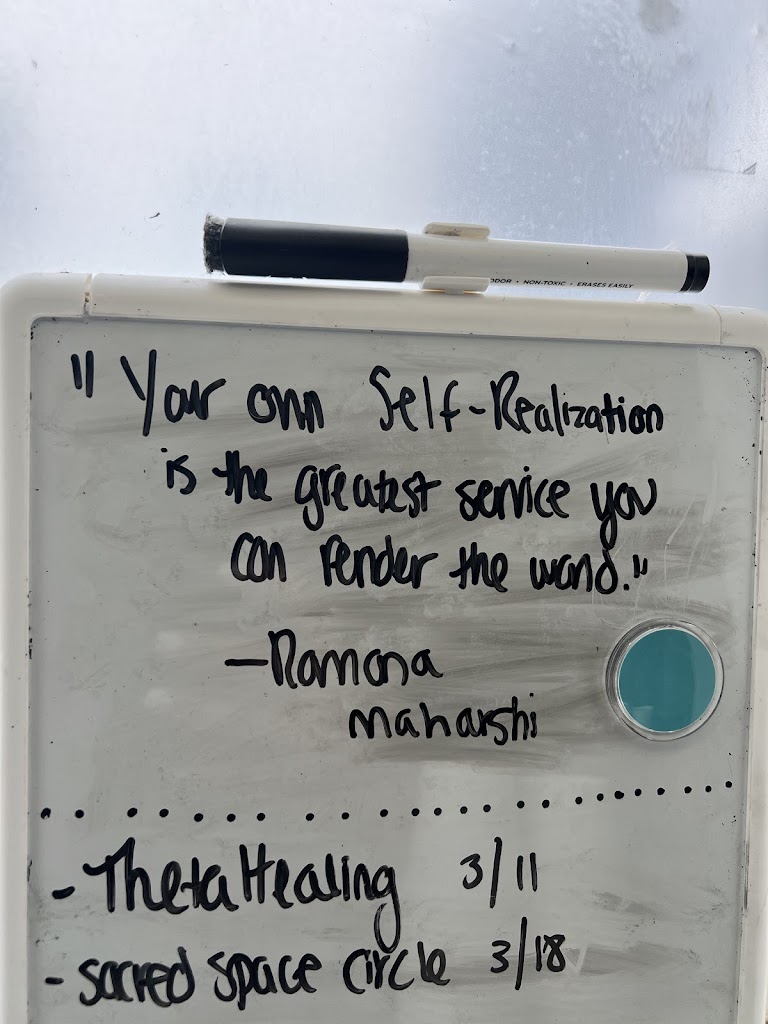 ODOR • NON-TOXIC • ERASES EASILY
"Your own Self-Realization
is the greatest service you
can render the world."
—Ramana
maharshi
- ThetaHealing 3/11
- sacred space circle 3/18